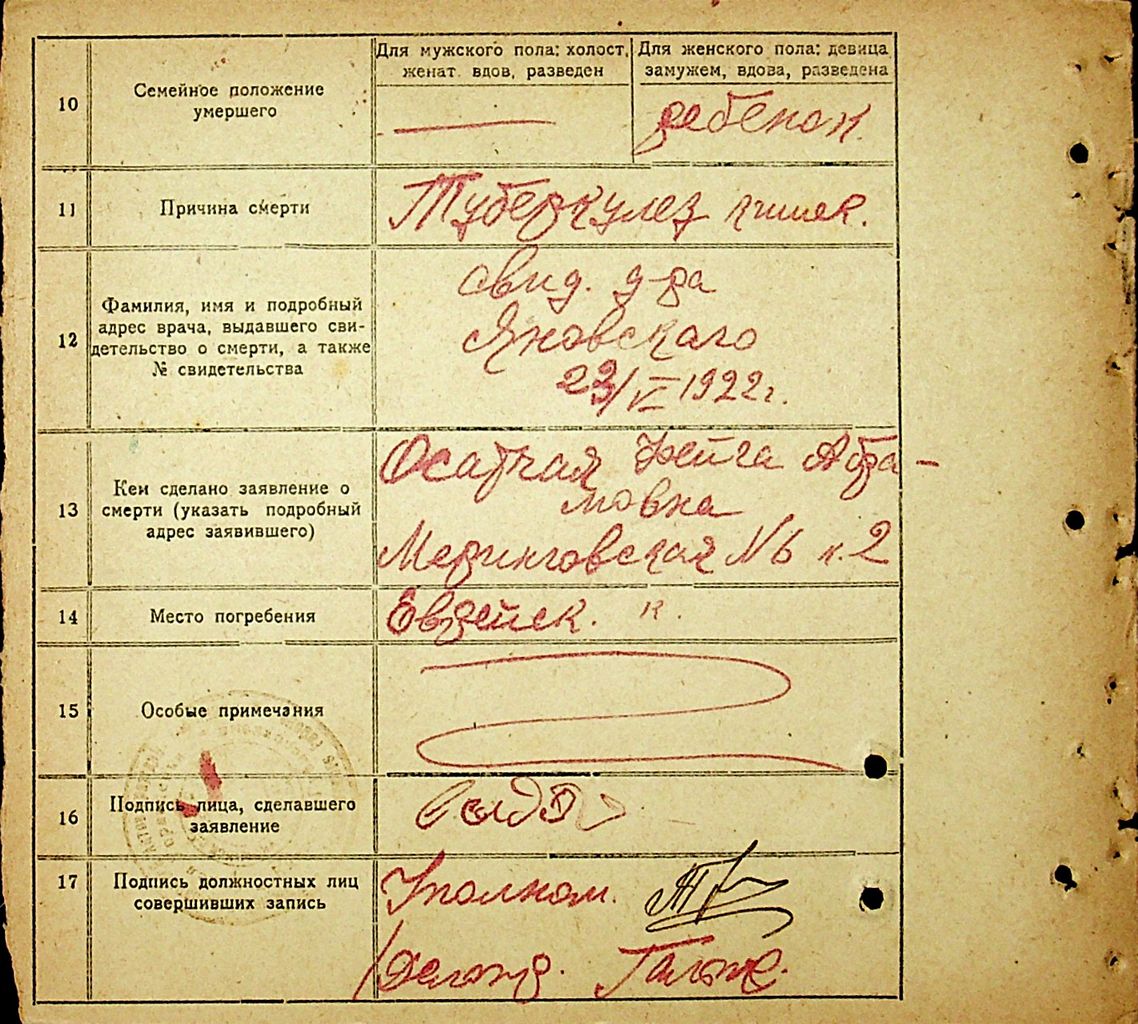 Для мужского пола: холост, женат. вдов, разведен
Для женского пола: девица замужем, вдова, разведена
10
Семейное положение
умершего
ребенок
11
Причина смерти
Туберкулез кишек.
12
Фамилия, имя и подробный
адрес врача, выдавшего сви-
детельство о смерти, а также
№ свидетельства
свид. д-ра
Яновского
22/VI 1922 г.
13
Кем сделано заявление о
смерти (указать подробный
адрес заявившего)
Осатчая Фейга Абра-
мовна
Меринговская N 6 к. 2
14
Место погребения
Еврейск. к.
15
Особые примечания
16
Подпись лица, сделавшего
заявление
17
Подпись должностных лиц
совершивших запись
Уполном.
Делопр.